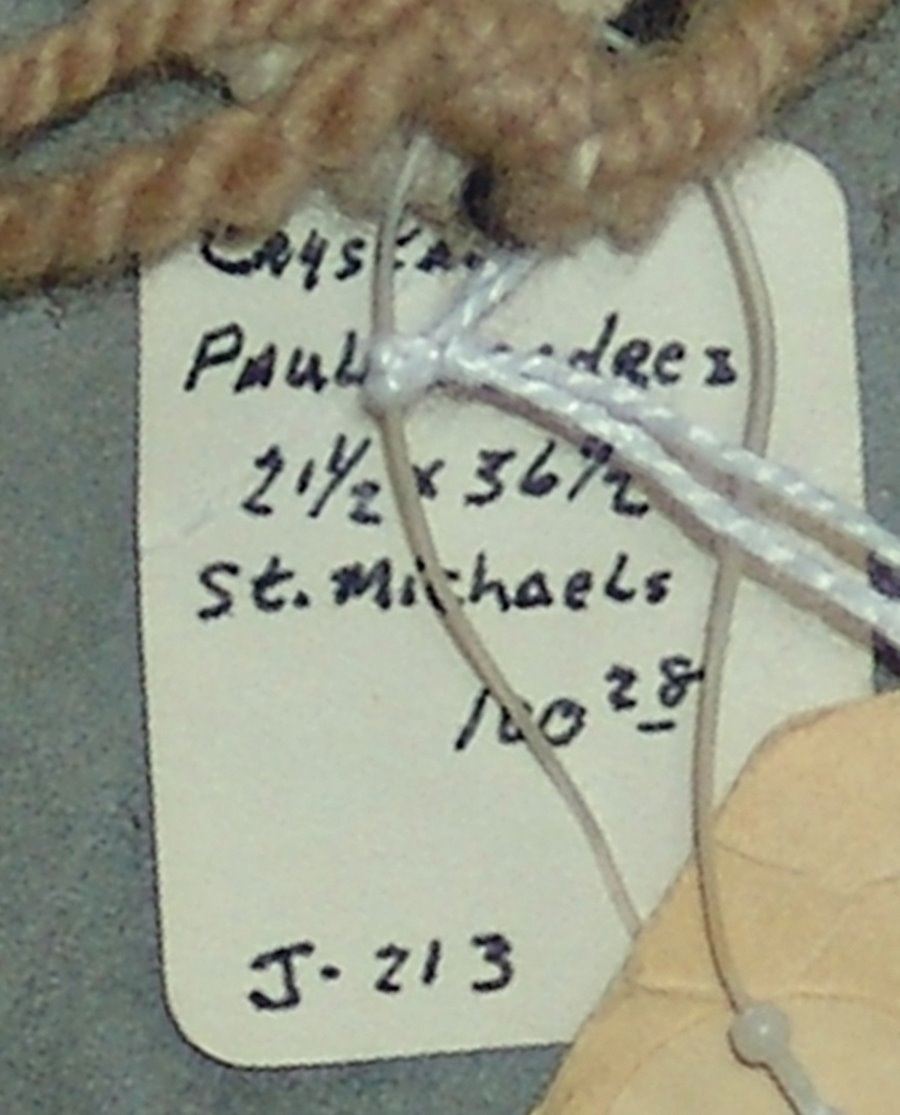 Crystal
Paul
21 1/2 x 36 1/2
St. Michaels
100 28
J-213